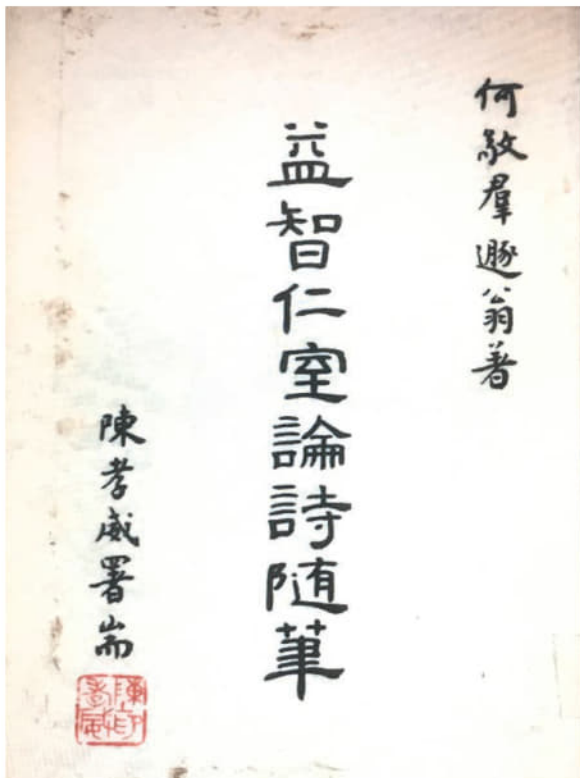 何敬羣遯翁著
益智仁室論詩随筆
陳孝威署耑
陳孝威印